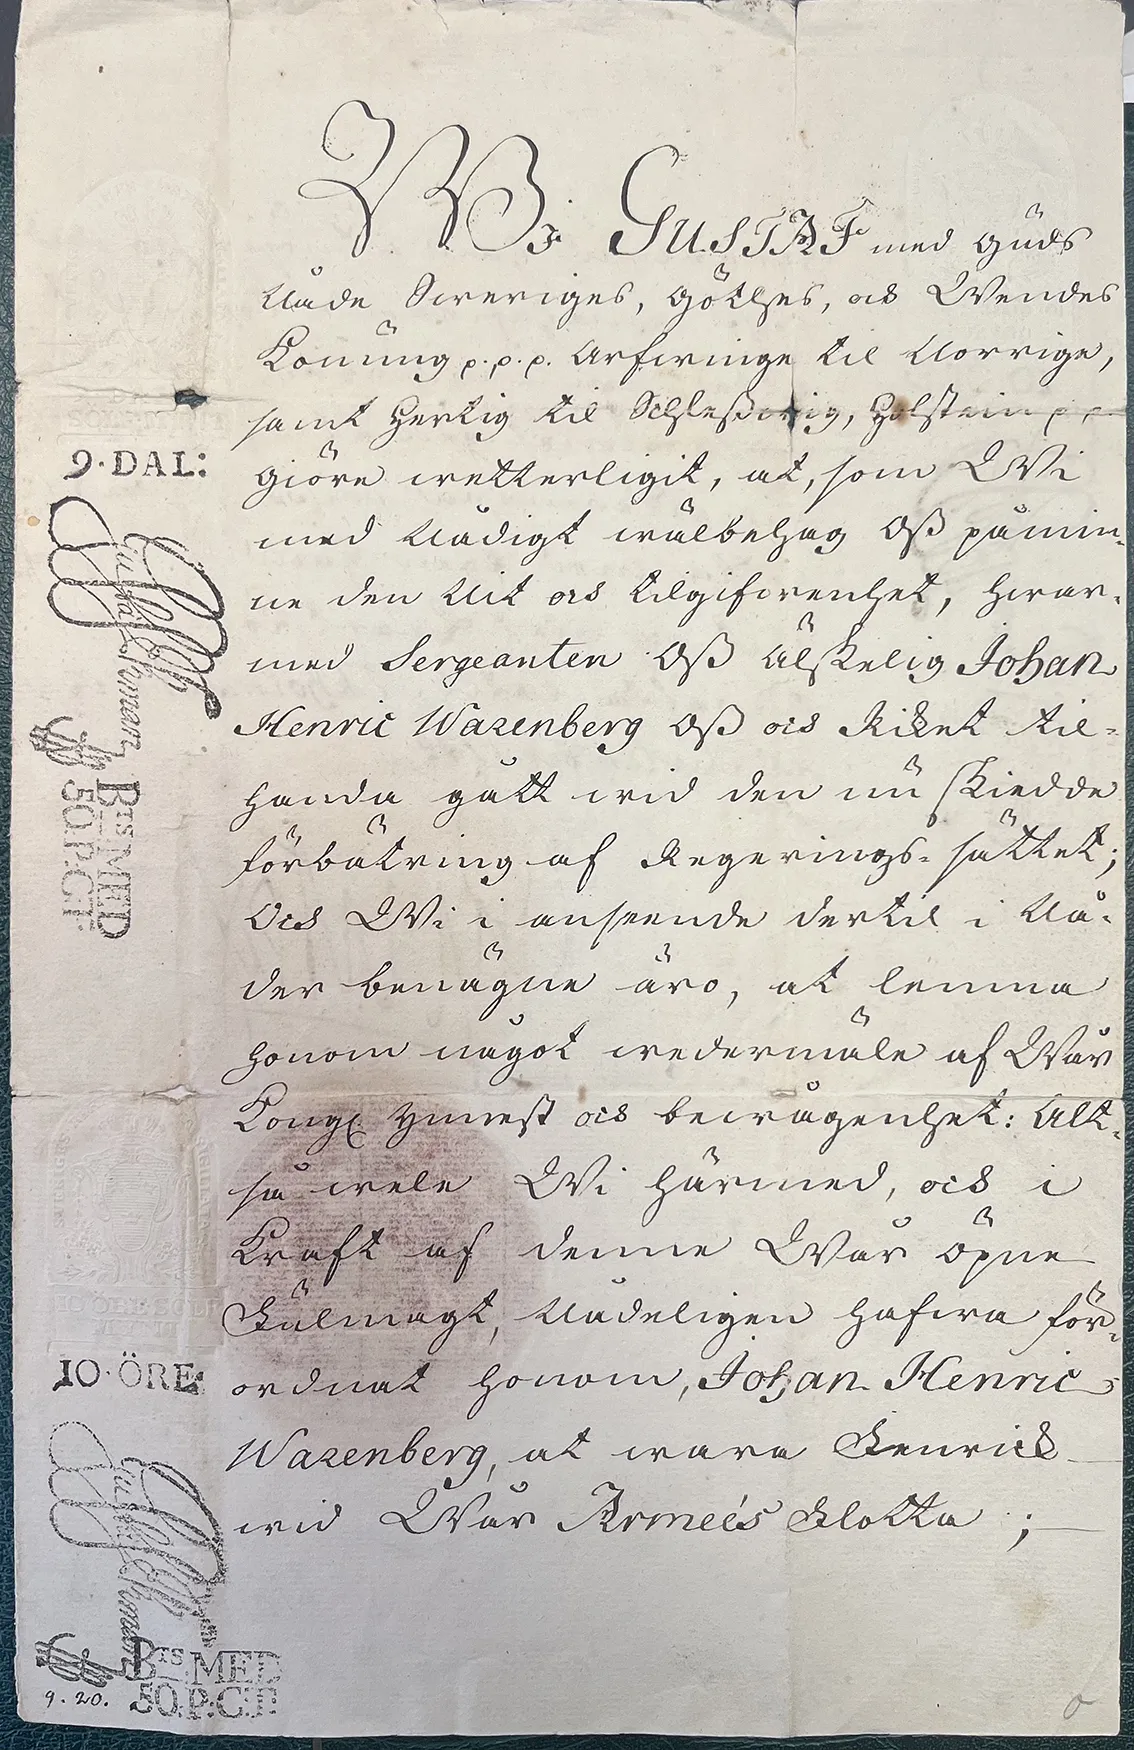 Wi GUSTAF med Guds
Nåde Sweriges, Göthes, och Wendes
Konung p. p. p. Arfwinge til Norrige,
samt Hertig til Schleßwig, Holstein p p
giöre wetterligit, at, som Wi
med Nådigt wälbehag Oß påmin-
ne den Nit och tilgifwenhet, hwar-
med Sergeanten Oß älskelig Johan
Henric Wazenberg Oß och Riket til-
handa gått wid den nu skiedde
förbätring af Regerings-sättet;
Och Wi i anseende dertil i Nå-
der benägne äro, at lemna
honom något wedermäle af Wår
Kongl. Ynnest och bewågenhet: Alt-
så wele Wi härmed, och i
Kraft af denne Wår öpne
Fulmagt, Nådeligen hafwa för-
ordnat honom, Johan Henric
Wazenberg, at wara Fenrick
wid Wår Armeés Flotta ;
9. DAL:
BTS MED
50. P. CT.
10. ÖRE:
BTS MED
50. P. CT.
9. 20.